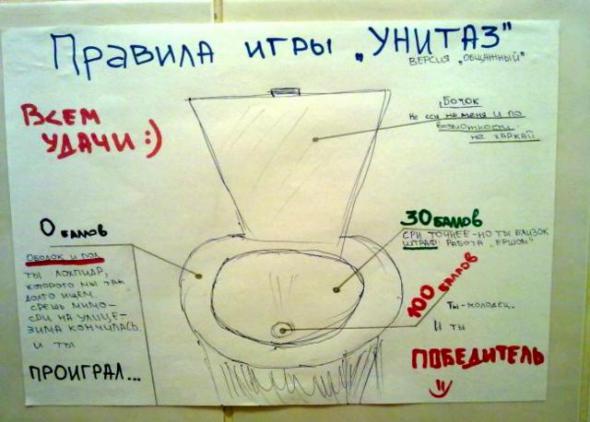 Правила игры „УНИТАЗ"
ВЕРСИЯ „ОБЩАЖНЫЙ"
ВСЕМ
УДАЧИ :)
БОЧОК
Не ссы на меня и по
возможности
не харкай
0 баллов
ОБОДОК И ПОЛ
ТЫ ЛОХПИДР,
КОТОРОГО МЫ ТАК
ДОЛГО ИЩЕМ...
СРЕШЬ МИМО-
СРИ НА УЛИЦЕ-
ЗИМА КОНЧИЛАСЬ.
И ТЫ
ПРОИГРАЛ...
30 БАЛЛОВ
СРИ ТОЧНЕЕ-НО ТЫ БЛИЗОК
ШТРАФ: РАБОТА „ЕРШОМ"
100 БАЛЛОВ
ТЫ-МОЛОДЕЦ..
И ТЫ
ПОБЕДИТЕЛЬ
=)